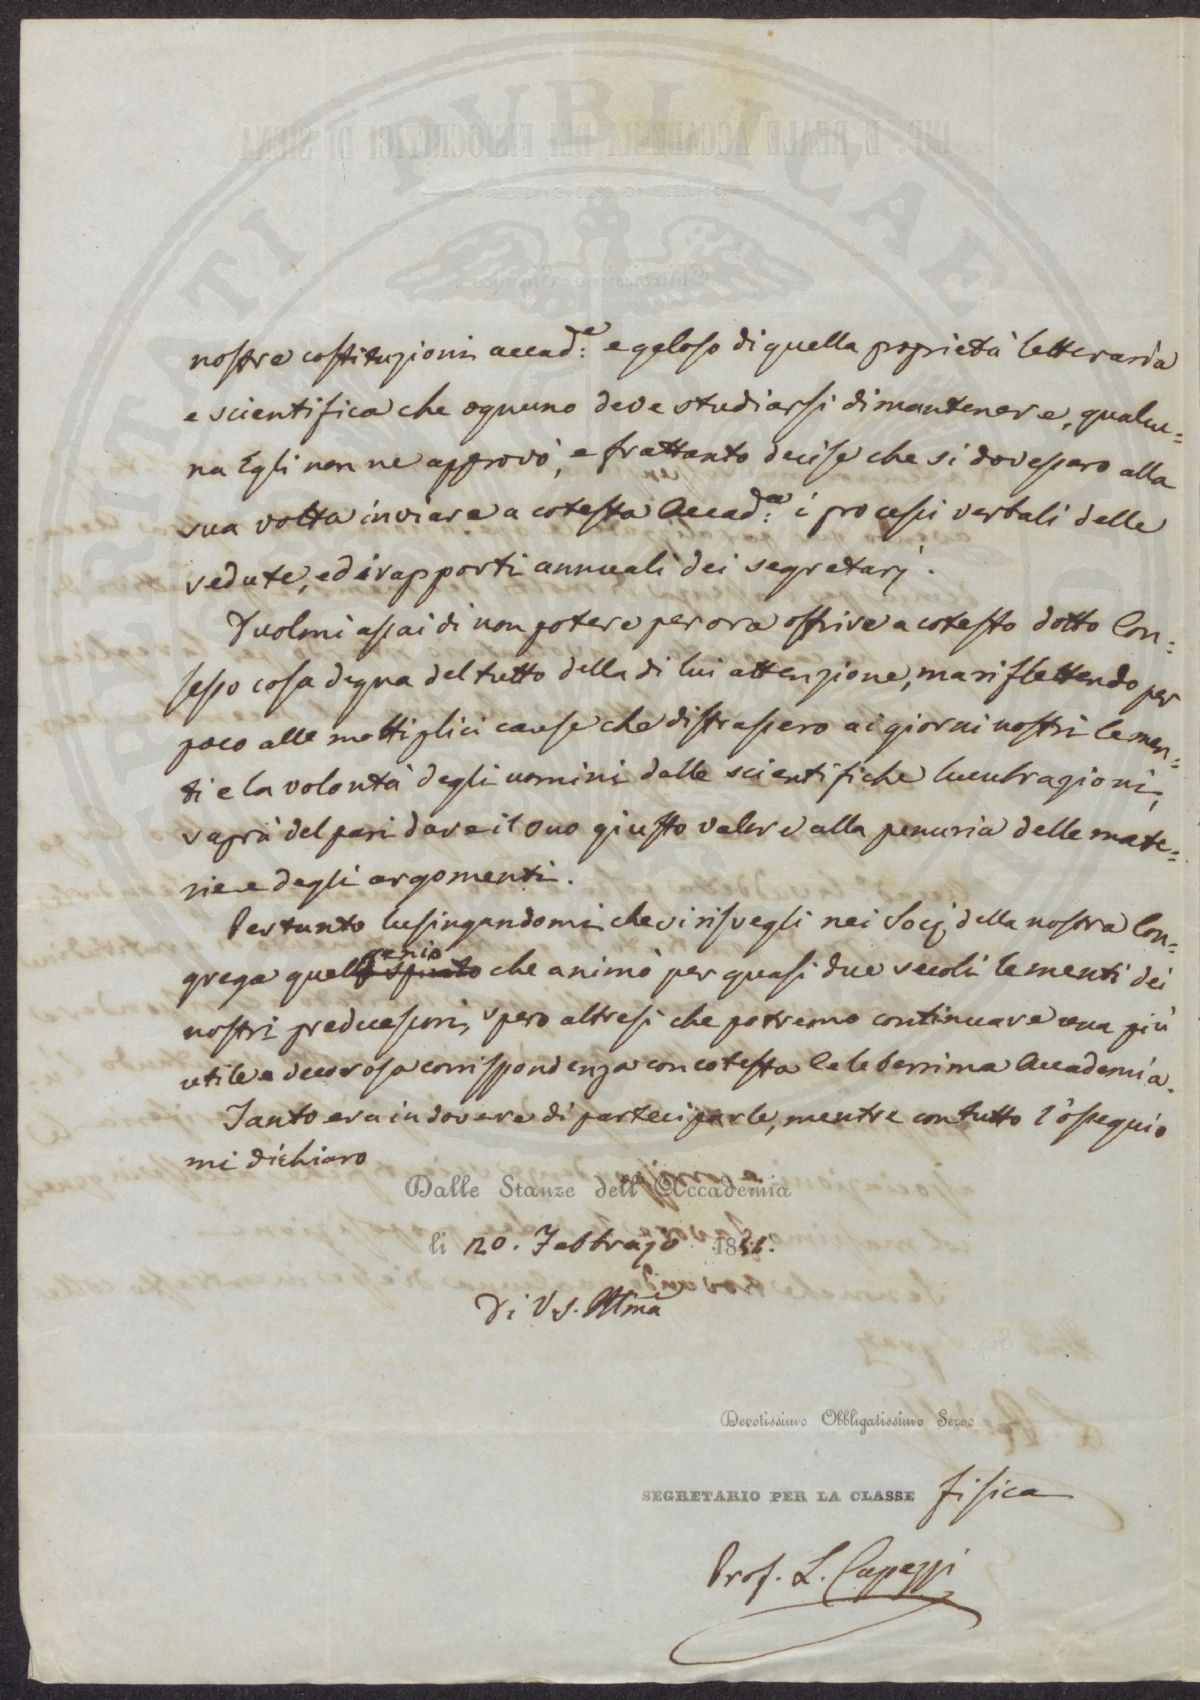 nostre costituzioni accad:e e geloso di quella proprietà letteraria
e scientifica che ognuno deve studiarsi di mantenere, qualcu=
na Egli non ne approvò, e frattanto decise che si dovessero alla
sua volta inviare a cotesta Accad:a i processi verbali delle
sedute, ed i rapporti annuali dei segretarj.
Duolmi assai di non potere per ora offrire a cotesto dotto Con=
sesso cosa degna del tutto della di lui attenzione, ma riflettendo per
poco alle moltiplici cause che distrassero ai giorni nostri le men=
ti e la volontà degli uomini dalle scientifiche lucubrazioni,
saprà del pari dare il suo giusto valore alla penuria delle mate=
rie e degli argomenti.
Pertanto lusingandomi che si risvegli nei Socj della nostra Con=
grega quel genio che animò per quasi due secoli le menti dei
nostri predecessori, spero altresì che potremo continuare una più
utile e decorosa corrispondenza con cotesta Celeberrima Accademia.
Tanto era in dovere di parteciparle, mentre con tutto l'ossequio
mi dichiaro
Dalle Stanze dell'Accademia
li 20. Febbrajo 18
Di V.S. Illma
Devotissimo Obbligatissimo Servo
SEGRETARIO PER LA CLASSE fisica
Prof. L. Capezzi